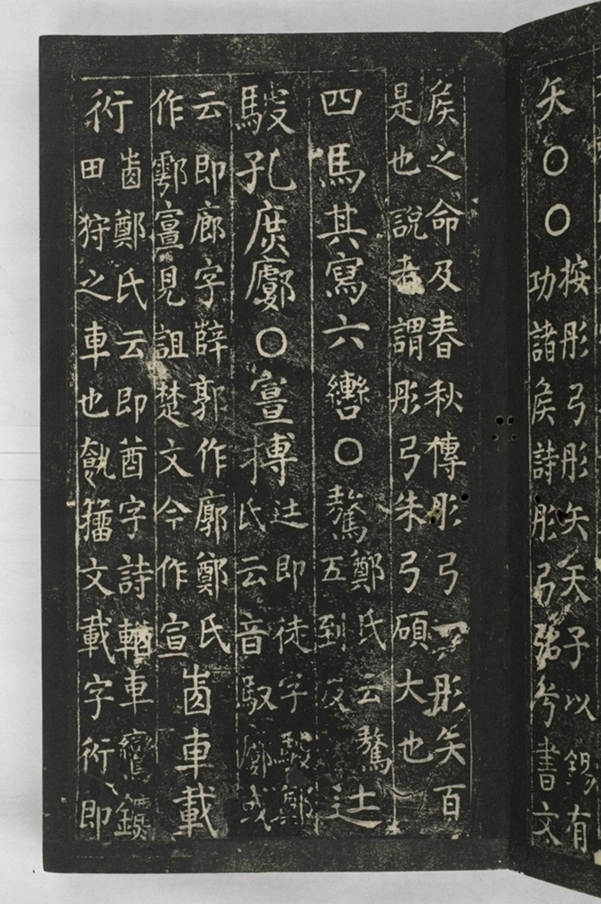 矢〇〇
按彤弓彤矢天子以錫有
功諸矦詩彤弓弨兮書文
矦之命及春秋傳彤弓一彤矢百
是也說者謂彤弓朱弓碩大也
四馬其寫六轡〇驁
鄭氏云驁
五到反
辻
騣孔庶〇搏
辻即徒字騣鄭
氏云音馭或
云即廊字薛郭作廓鄭氏
作見詛楚文今作宣
車載
行
鄭氏云即酋字詩輶車鸞鑣
田狩之車也籀文載字行即